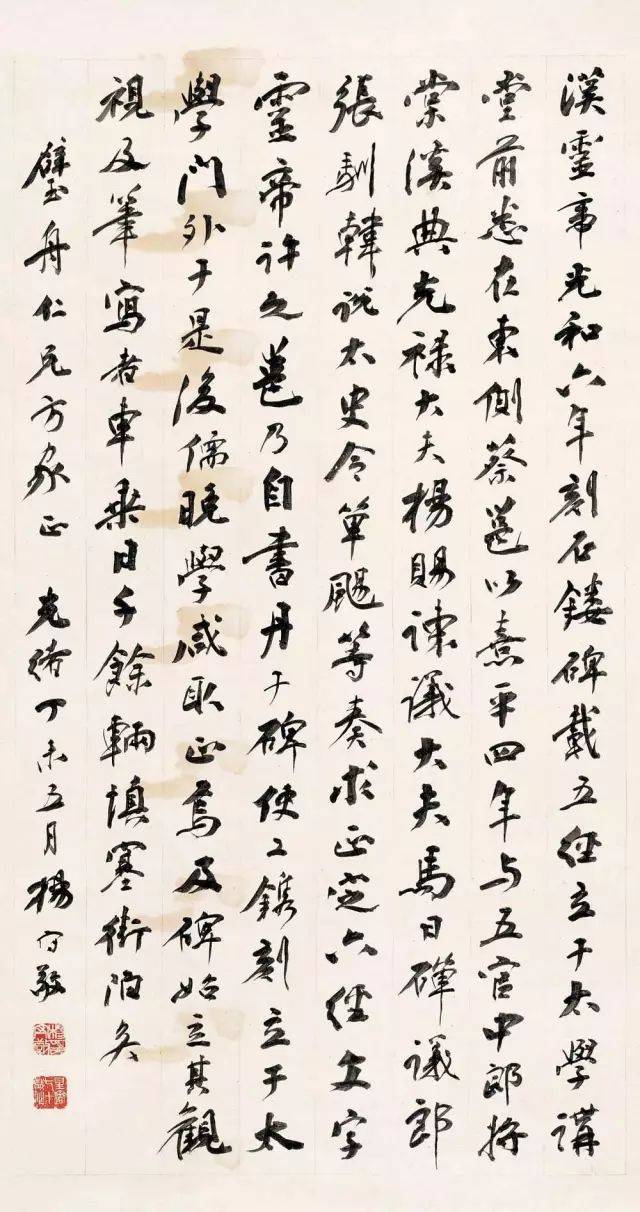 漢靈帝光和六年刻石鏤碑載五經立于太學講
堂前悉在東側蔡邕以熹平四年与五官中郎將
棠溪典光禄大夫楊賜諫議大夫馬日磾議郎
張馴韓說太史令單颺等奏求正定六經文字
靈帝許之邕乃自書丹于碑使工鐫刻立于太
學門外于是後儒晚學咸取正焉及碑始立其觀
視及筆寫者車乘日千餘輛填塞街陌矣
璧舟仁兄方家正 光緒丁未五月楊守敬